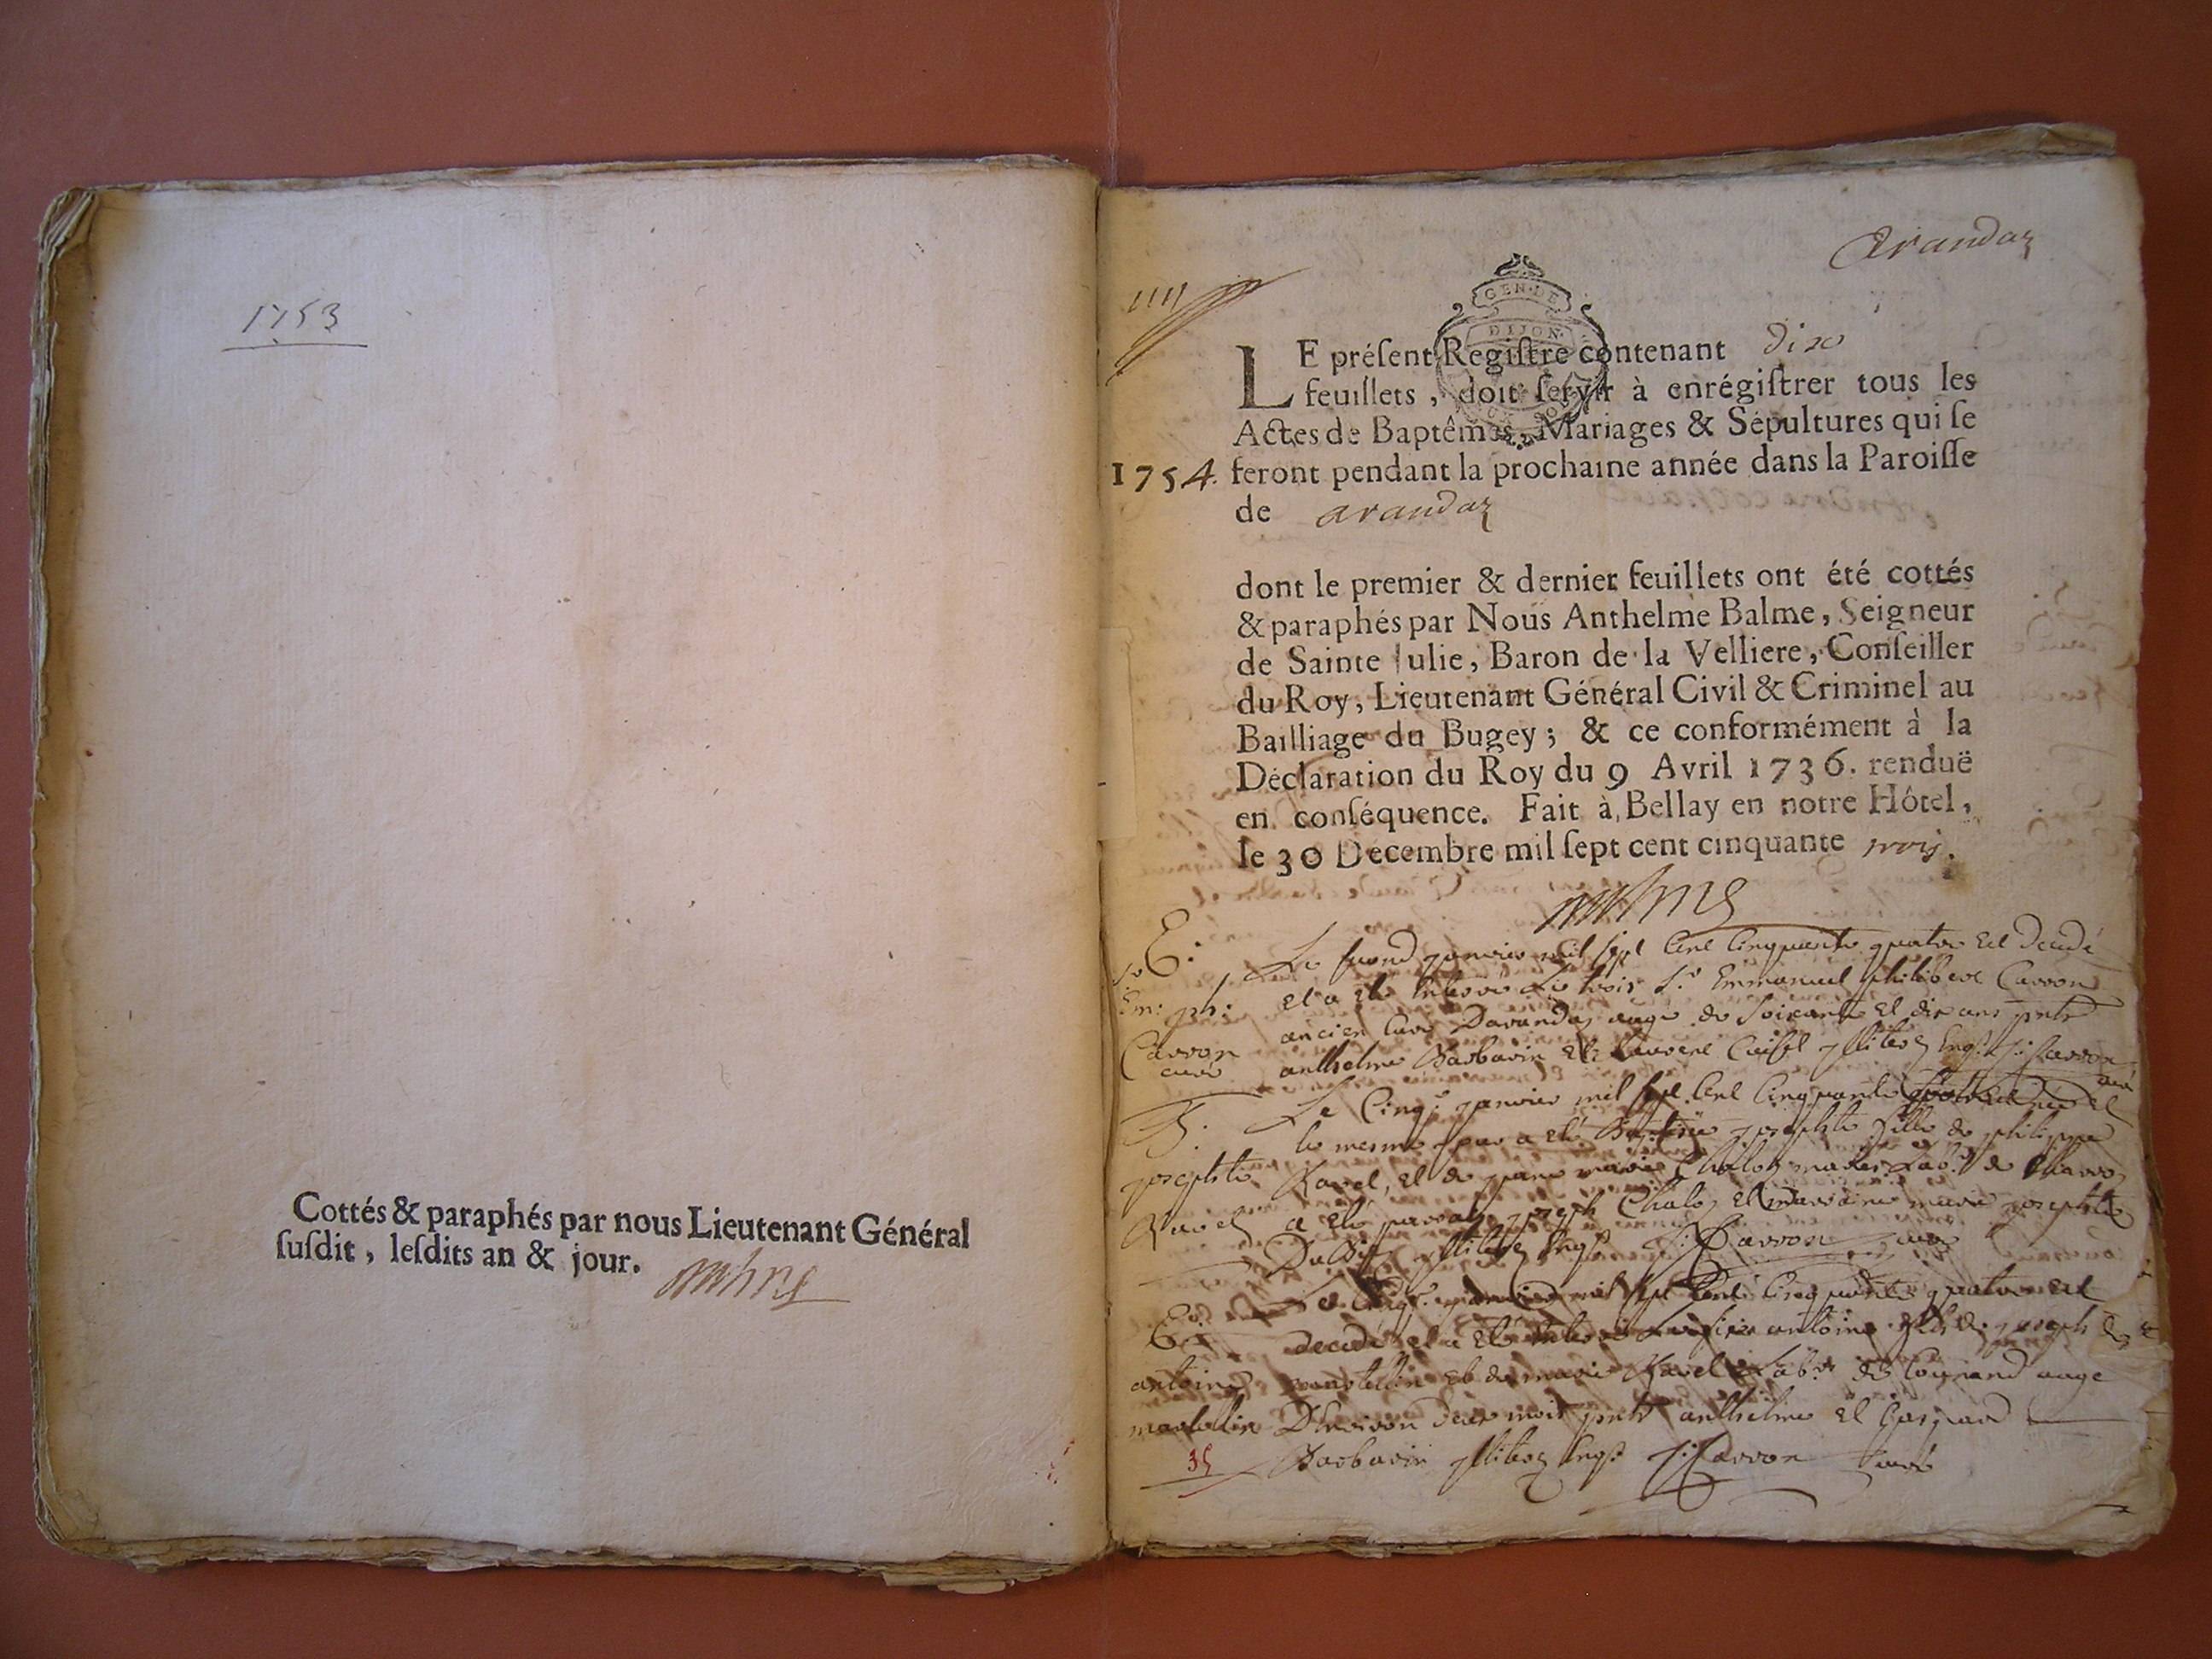 1753
Cottés & paraphés par nous Lieutenant Général
ſuſdit, leſdits an & jour.
Arandaz
GEN·DE
DIJON
LE préſent Regiſtre contenant dix
feuillets, doit ſervir à enrégiſtrer tous les
Actes de Baptêmes, Mariages & Sépultures qui ſe
1754. feront pendant la prochaine année dans la Paroiſſe
de arandaz
dont le premier & dernier feuillets ont été cottés
& paraphés par Nous Anthelme Balme, Seigneur
de Sainte Julie, Baron de la Velliere, Conſeiller
du Roy, Lieutenant Général Civil & Criminel au
Bailliage du Bugey; & ce conformément à la
Déclaration du Roy du 9 Avril 1736. renduë
en conſéquence. Fait à Bellay en notre Hôtel,
le 30 Decembre mil ſept cent cinquante trois.
E: Le second janvier mil sept cent cinquante quatre est decedé
Sr et a eté enterré le trois Sr Emmanuel philibert Carron
Em: ph: ancien curé Darandaz augé de soixante et dix ans
Carron curé anthelme Barbarin et laurent J: Carron curé
B: Le janvier mil sept cent cinquante
le mesme jour a eté josephte fille de philippe
josephte Ravel, et de jane marie Chaloz mariés de
Ravel a eté parrain joseph Chaloz et marraine marie josephte
J: Carron curé
janvier mil sept cent cinquante quatre est
E: decedé et a eté enterré le antoine fils de joseph
antoine martellin et de marie Ravel de augé
martellin D'environ deux mois anthelme et gaspard
35 Barbarin J: Carron curé